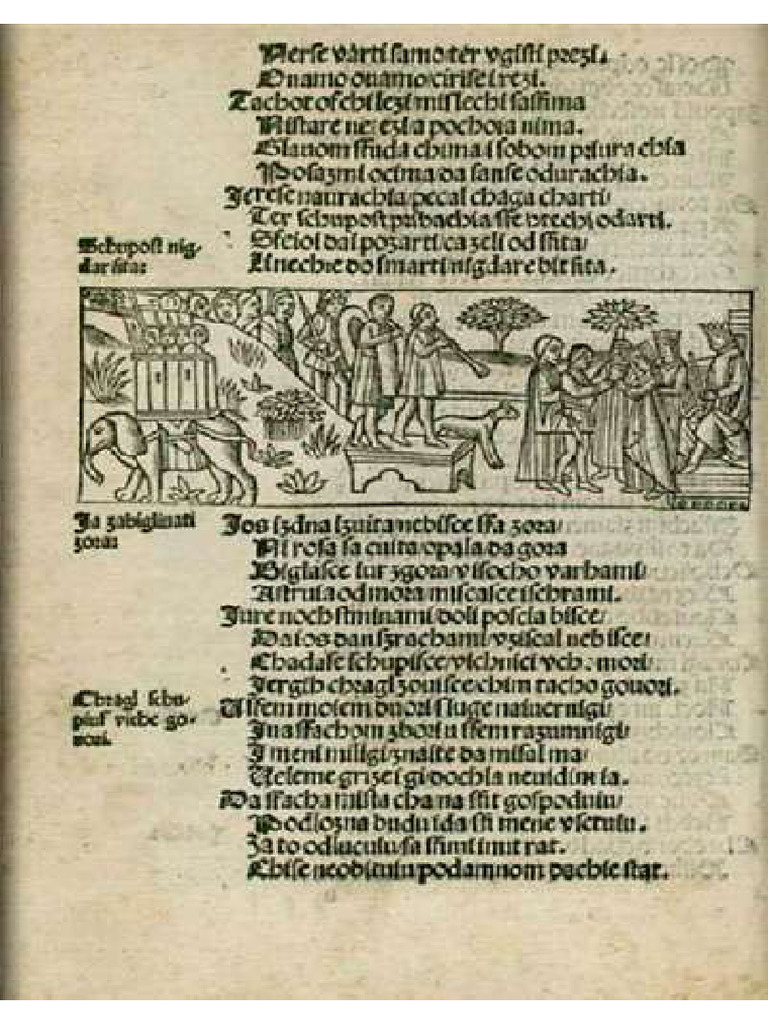 Nerse varti samo ter vgisti prezi.
Onamo ovamo cirise i rezi.
Tachot ofchi lezi mislechi saffima
Nistare ne rezi a pochoia nima.
Glavom ffuda chima i sobom
Posazmi ocima da sanse odurachia.
Jerese naurachia pecal chaga charti/
Ter schupost
Schupost nig-
dar sita:
Sfeioi dai pozarti/ca zeli od ffita/
I nechie do smarti nigdare bit sita.
Ja zabiglinati
zora:
Jos izdna izuita nebisce ffa zora/
Ni rosa sa cuita/opala/da gora
Biglasce iur zgora/visocho varhami/
A struia od mora miscalsce ischrami.
Jure noch stminami/doli poscia bisce/
Da ios dan szrachami/vziscal nebisce/
Chadase schupisce/vichnici vcho mori/
Jer gih chragl zovisce/chim tacho govori.
Chragl schu-
pius viche go-
vori.
U ffem moiem dvori sluge naivernigi/
I na ffachom zbori u ffem razumnigi/
Imeni miligi/znaite da misal ma/
Veleme grize i gi/dochla nevidim ia.
Da ffacha mista cha na ffit gospoduiu/
Podlozna budu i da ffi mene vsetuiu.
Za to odlucuiu/sa ffimi imit rat.
Chise neobituiu pod amnom dachle stat.